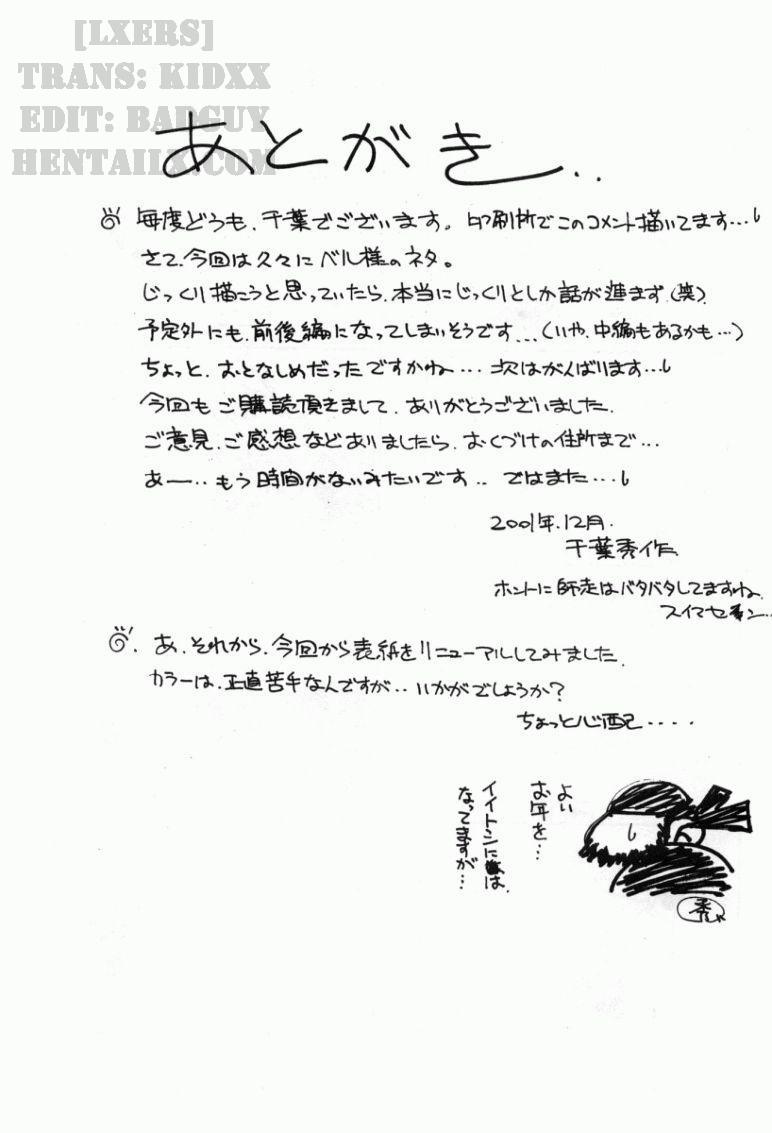 [LXERS]
TRANS: KIDXX
EDIT: BADGUY
HENTAILX.COM
あとがき..
毎度どうも、千葉でございます。印刷所でこのコメント描いてます…
さて、今回は久々にベル様のネタ。
じっくり描こうと思っていたら、本当にじっくりとしか話が進まず(笑).
予定外にも、前後編になってしまいそうです…(いや、中編もあるかも…)
ちょっと、おとなしめだったですかね…次はがんばります…
今回もご購読頂きまして、ありがとうございました.
ご意見、ご感想などありましたら、おくづけの住所まで…
あー‥もう時間がないみたいです‥ではまた…
2001年.12月.
千葉秀作
ホントに師走はバタバタしてますね.
スイマセン…
あ、それから、今回から表紙をリニューアルしてみました.
カラーは、正直苦手なんですが‥いかがでしょうか?
ちょっと心配....
よい
お年を…
なってますが…
秀